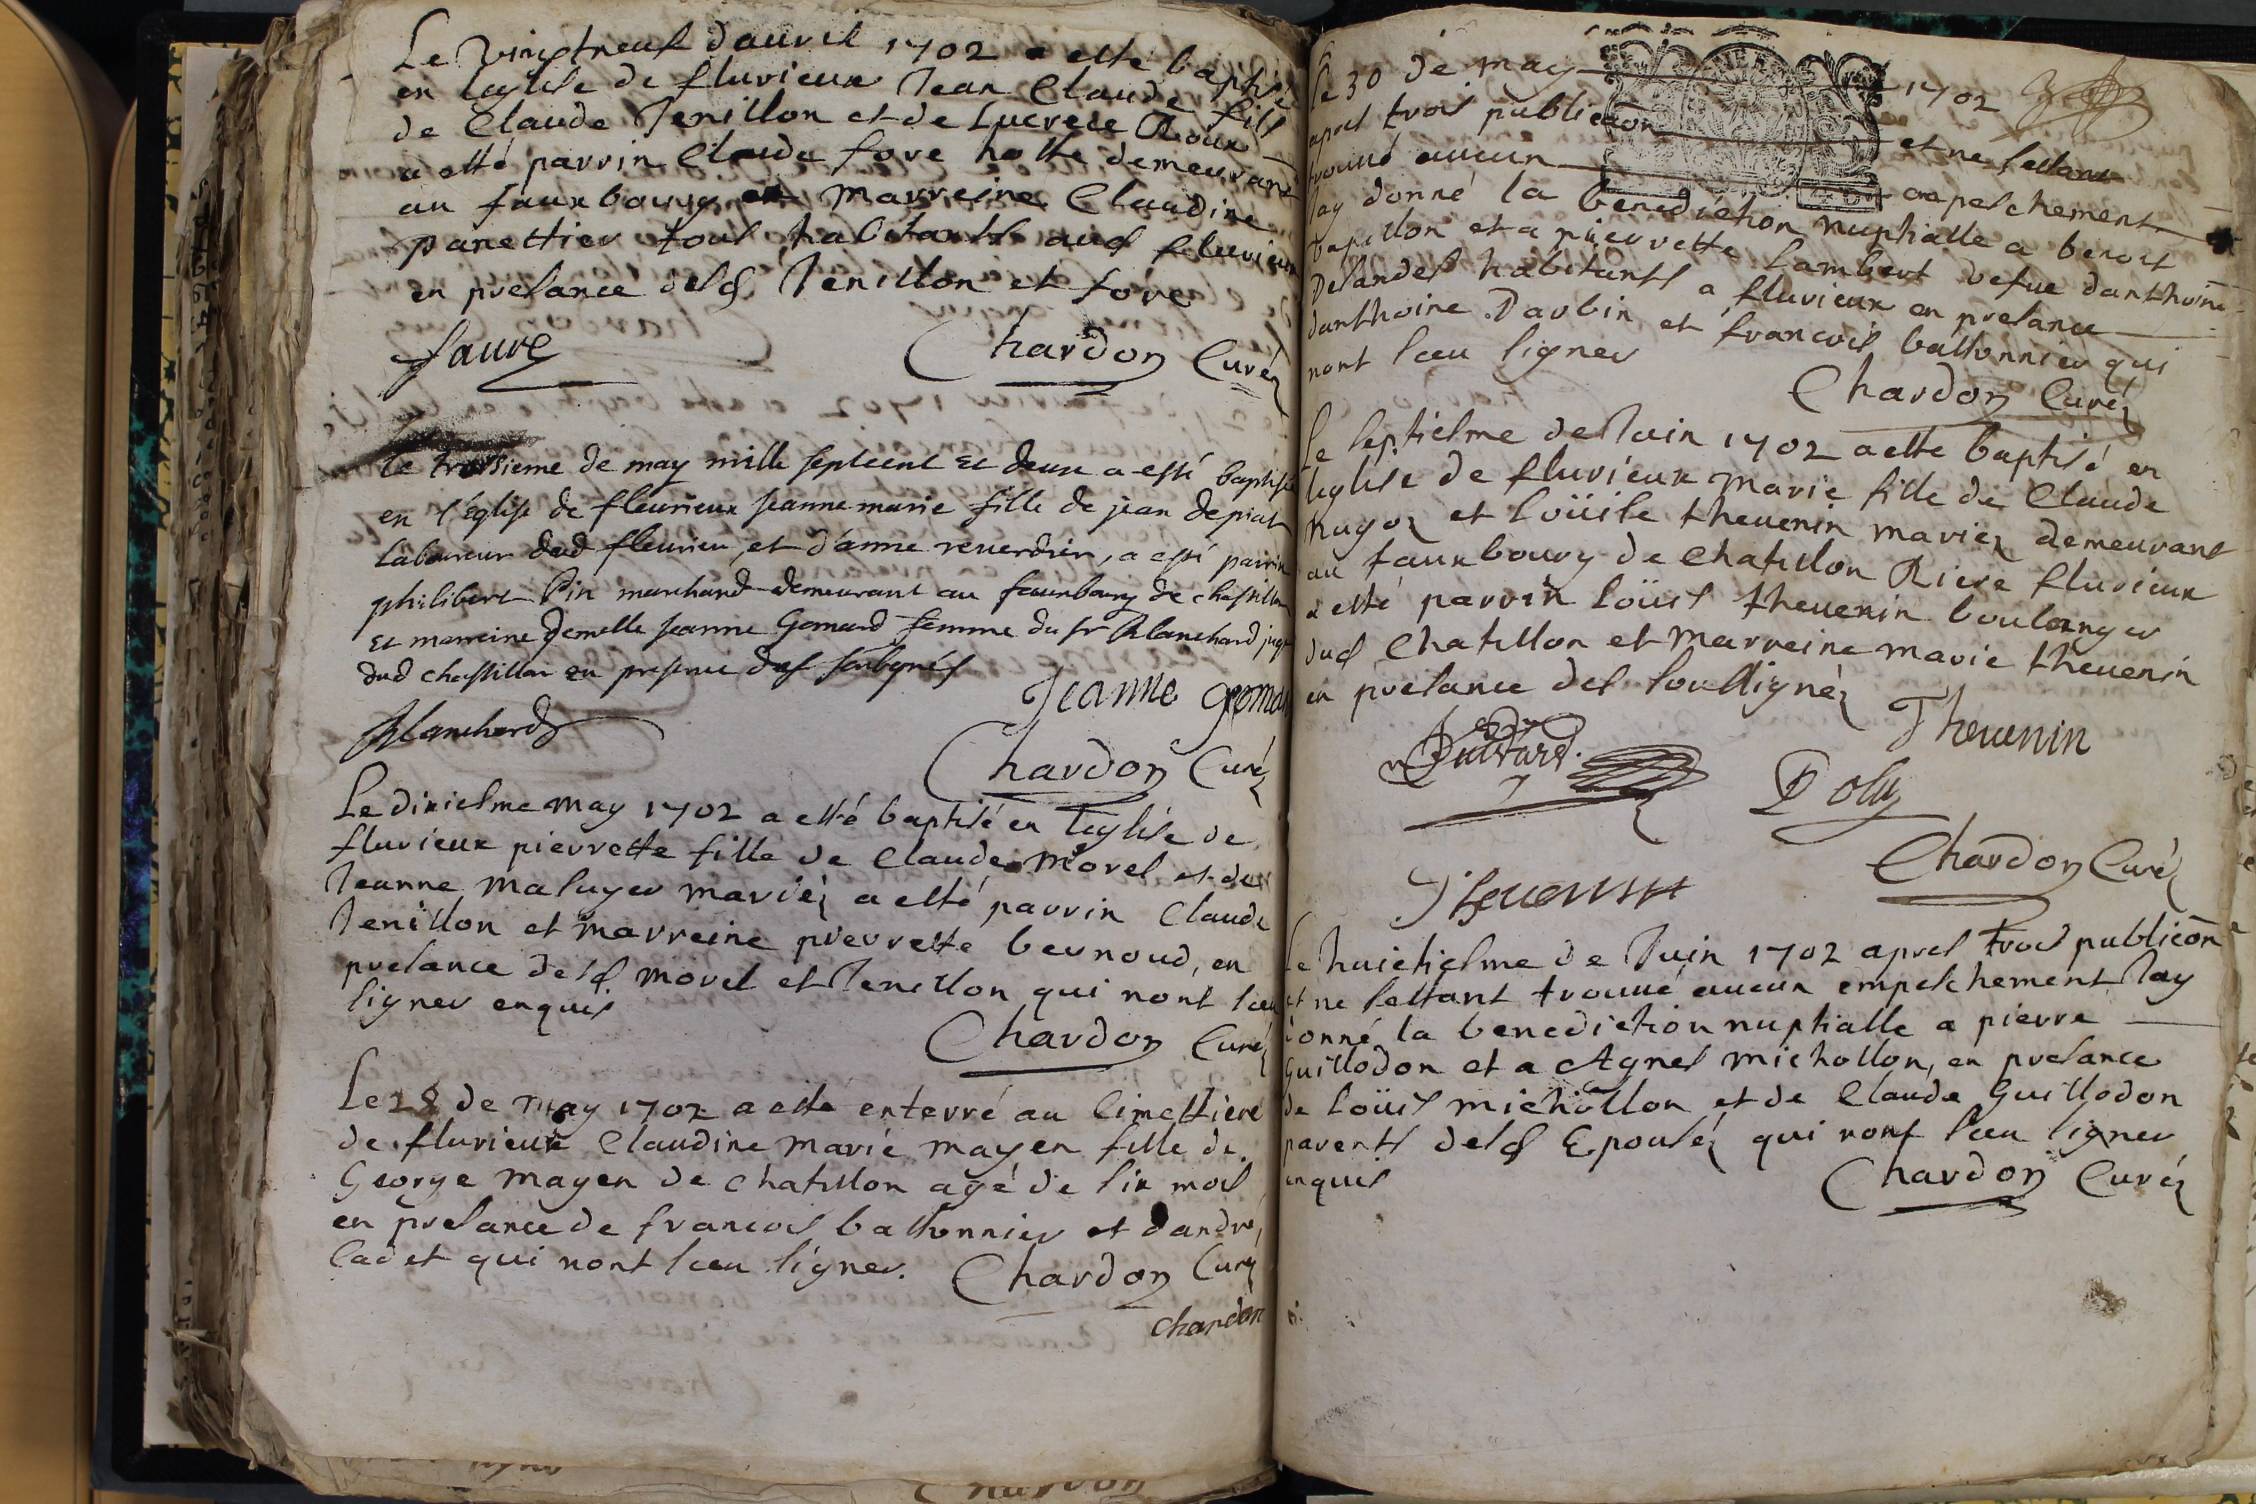 Le vingtneuf dauril 1702 a esté baptisé
en leglise de fluvieux Jean Claude fils
de Claude Jenillon et de Lucrece Roux
a esté parrin Claude fore hoste demeurant
au fauxbourg et marreine Claudine
panettier tous habitants aud fluvieux
en presance desd Jenillon et fore
faure Chardon Curé
le troisieme de may mille septcent et deux a esté baptisée
en l'église de fleurieux jeanne marie fille de jean depiat
laboureur dud fleurieu, et d'anne reverdier, a esté parrin
philibert Pin marchand demeurant au fauxbourg de chastillon
et marreine Demelle jeanne Gomard femme du sr Blanchard juge
dud chastillon en presence des soubsignés
Jeanne gomar
Blanchard
Chardon Curé
Le dixiesme may 1702 a esté baptisé en leglise de
fluvieux pierrette fille de Claude Morel et de
Jeanne maluyer mariéz a esté parrin Claude
Jenillon et marreine pierrette bernoud, en
presance desd morel et Jenillon qui nont sceu
signer enquis
Chardon Curé
Le 28 de may 1702 a esté enterré au Cimettiere
de fluvieux Claudine Marie mayen fille de
George mayen de chatillon agé de six mois
en presance de francois bastonnier et dandré
Cadet qui nont sceu signer. Chardon Curé
chardon
le 30 de may 1702
apres trois publicaon et ne sestant
trouvé aucun empeschement
Jay donné la benediction nuptialle a benoit
papillon et a pierrette Lambert vefue danthoine
Desandes habitants a fluvieux en presance
danthoine Darbin et francois bastonnier qui
nont sceu signer
Chardon Curé
Le septiesme de Juin 1702 a esté baptisé en
leglise de fluvieux Marie fille de Claude
hugoz et Loüise thevenin mariéz demeurant
au fauxbourg de Chatillon Riere fluvieux
a esté parrin Loüis thevenin boulanger
dud Chatillon et Marreine marie thevenin
en presance des soussignéz
Thevenin
Poly
Chardon Curé
Thevenin
Le huictiesme de Juin 1702 apres trois publicon
et ne sestant trouvé aucun empeschement Jay
donné la benediction nuptialle a pierre
Guillodon et a Agnes michollon, en presance
de Loüis michollon et de Claude Guillodon
parents desd Epouséz qui nont sceu signer
enquis
Chardon Curé